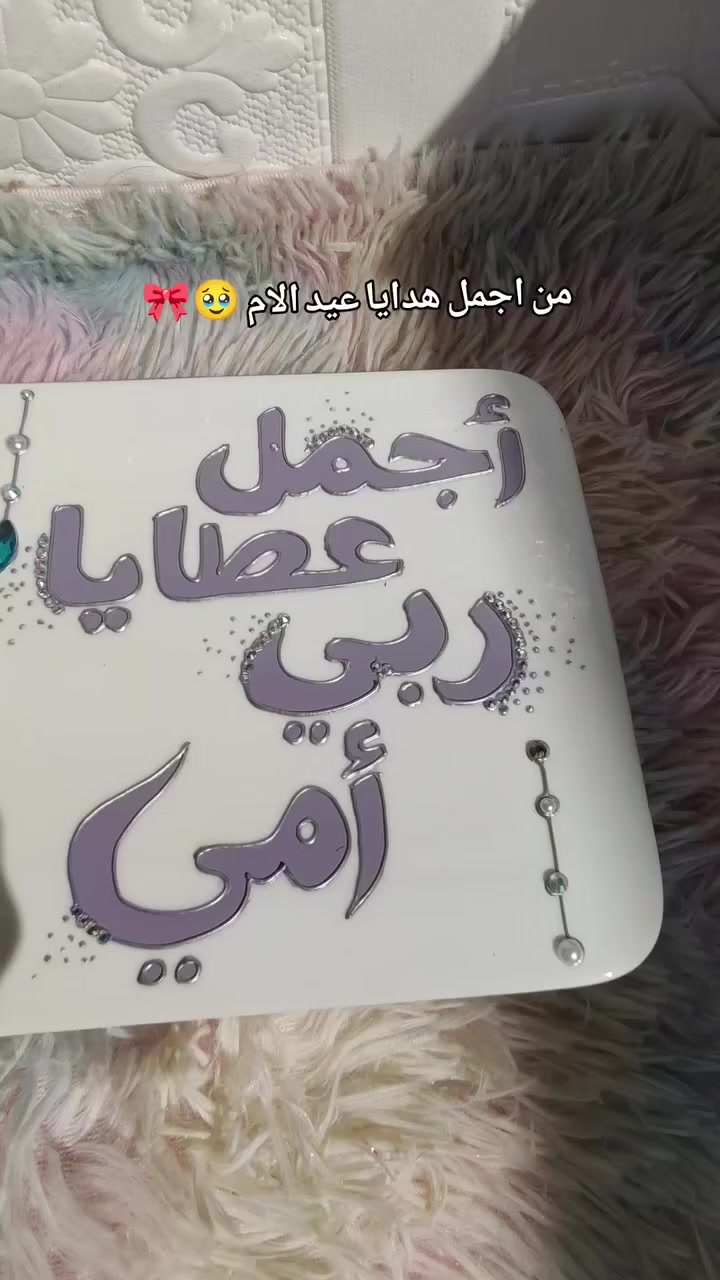 من اجمل هدايا عيد الام 🥹🎀
أجمل
عطايا
ربي
أمي